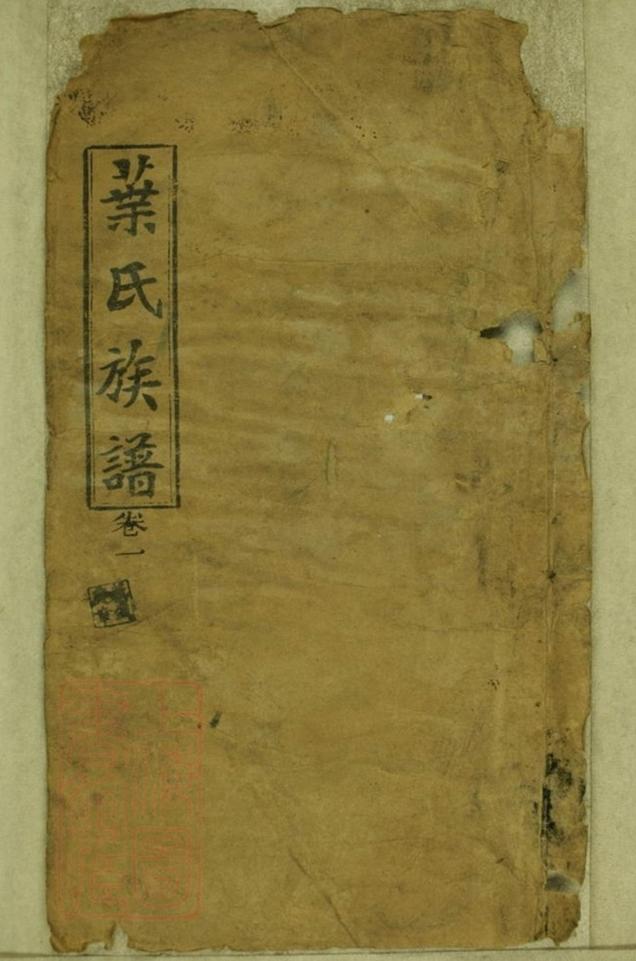 葉氏族譜
卷一